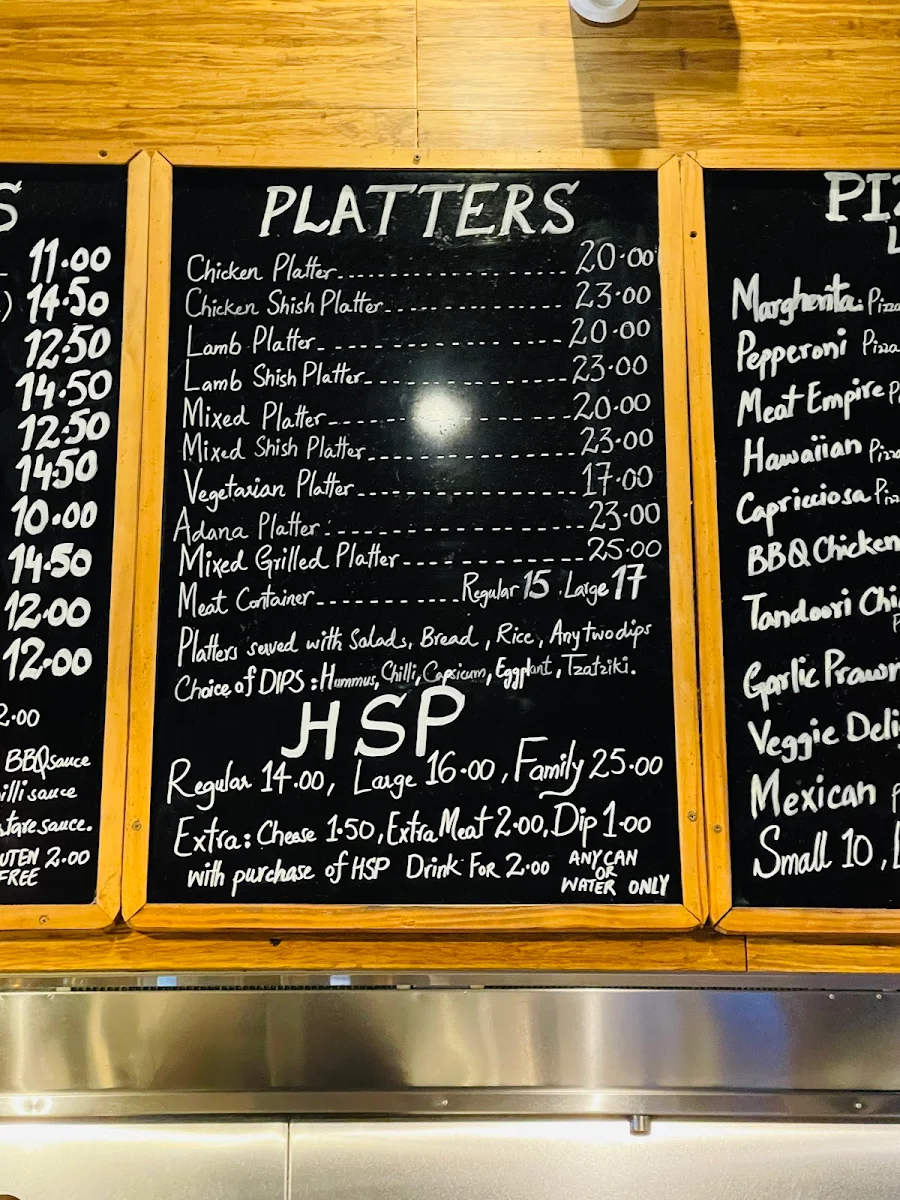 S
11.00
) 14.50
12.50
14.50
12.50
14.50
10.00
14.50
12.00
12.00
2.00
BBQ sauce
illi sauce
sauce.
UTEN 2.00
FREE
PLATTERS
Chicken Platter 20.00
Chicken Shish Platter 23.00
Lamb Platter 20.00
Lamb Shish Platter 23.00
Mixed Platter 20.00
Mixed Shish Platter 23.00
Vegetarian Platter 17.00
Adana Platter 23.00
Mixed Grilled Platter 25.00
Meat Container Regular 15 . Large 17
Platters served with Salads, Bread, Rice, Any two dips
Choice of DIPS : Hummus, Chilli, Capsicum, Eggplant, Tzatziki.
HSP
Regular 14.00, Large 16.00, Family 25.00
Extra: Cheese 1.50, Extra Meat 2.00, Dip 1.00
with purchase of HSP Drink For 2.00 ANY CAN
OR
WATER ONLY
PIZ
L
Margherita Pizza
Pepperoni Pizza
Meat Empire P
Hawaiian Pizza
Capricciosa Piz
BBQ Chicken
Tandoori Chi
P
Garlic Prawn
Veggie Deli
Mexican P
Small 10, L